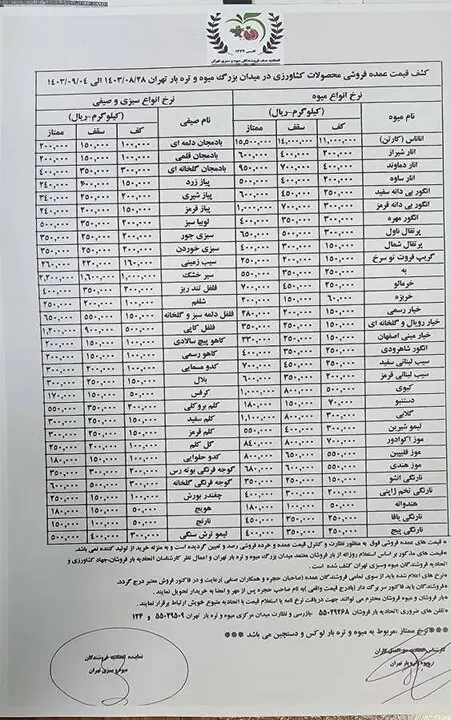 تاسیس ۱۳۲۲
اتحادیه صنف فروشندگان میوه و سبزی تهران
کشف قیمت عمده فروشی محصولات کشاورزی در میدان بزرگ میوه و تره بار تهران ۱۴۰۳/۰۸/۲۸ الی ۱۴۰۳/۰۹/۰۴
نرخ انواع میوه نرخ انواع سبزی و صیفی
نام میوه (کیلوگرم-ریال) نام صیفی (کیلوگرم-ریال)
کف سقف ممتاز کف سقف ممتاز
آناناس (کارتن) ۱۱,۰۰۰,۰۰۰ ۱۴,۰۰۰,۰۰۰ ۱۵,۵۰۰,۰۰۰ بادمجان دلمه ای ۱۰۰,۰۰۰ ۱۵۰,۰۰۰ ۲۰۰,۰۰۰
انار شیراز ۲۰۰,۰۰۰ ۴۰۰,۰۰۰ ۶۰۰,۰۰۰ بادمجان قلمی ۱۰۰,۰۰۰ ۱۵۰,۰۰۰ ۲۰۰,۰۰۰
انار دماوند ۴۰۰,۰۰۰ ۷۰۰,۰۰۰ ۹۵۰,۰۰۰ بادمجان گلخانه ای ۳۰۰,۰۰۰ ۳۵۰,۰۰۰ ۴۰۰,۰۰۰
انار ساوه ۲۰۰,۰۰۰ پیاز زرد ۱۵۰,۰۰۰ ۲۴۰,۰۰۰
انگور بی دانه سفید ۲۵۰,۰۰۰ ۴۵۰,۰۰۰ ۶۰۰,۰۰۰ پیاز شیری ۲۰۰,۰۰۰ ۲۵۰,۰۰۰ ۳۴۰,۰۰۰
انگور بی دانه قرمز ۷۰۰,۰۰۰ پیاز قرمز ۱۵۰,۰۰۰ ۲۰۰,۰۰۰ ۲۴۰,۰۰۰
انگور مهره ۳۵۰,۰۰۰ ۴۰۰,۰۰۰ لوبیا سبز ۲۰۰,۰۰۰ ۳۵۰,۰۰۰ ۵۰۰,۰۰۰
پرتقال ناول ۳۰۰,۰۰۰ ۵۰۰,۰۰۰ ۶۵۰,۰۰۰ سبزی جور ۲۰۰,۰۰۰ ۲۵۰,۰۰۰ ۳۵۰,۰۰۰
پرتقال شمال ۱۵۰,۰۰۰ ۳۰۰,۰۰۰ ۴۰۰,۰۰۰ سبزی خوردن ۲۰۰,۰۰۰ ۲۵۰,۰۰۰ ۳۵۰,۰۰۰
گریپ فروت تو سرخ ۱۵۰,۰۰۰ ۲۰۰,۰۰۰ ۲۵۰,۰۰۰ سیب زمینی ۱۶۰,۰۰۰ ۲۲۰,۰۰۰ ۲۶۰,۰۰۰
به ۲۵۰,۰۰۰ ۳۵۰,۰۰۰ ۵۵۰,۰۰۰ سیر خشک ۱,۶۰۰,۰۰۰ ۲,۲۰۰,۰۰۰
خرمالو ۲۵۰,۰۰۰ ۴۵۰,۰۰۰ ۷۰۰,۰۰۰ فلفل تند ریز ۲۰۰,۰۰۰ ۳۵۰,۰۰۰ ۴۰۰,۰۰۰
خربزه ۶۰,۰۰۰ ۱۵۰,۰۰۰ ۲۰۰,۰۰۰ شلغم ۱۰۰,۰۰۰ ۲۰۰,۰۰۰ ۲۵۰,۰۰۰
خیار رسمی ۱۵۰,۰۰۰ ۲۰۰,۰۰۰ ۲۸۰,۰۰۰ فلفل دلمه سبز و گلخانه ۱۵۰,۰۰۰ ۵۵۰,۰۰۰ ۶۵۰,۰۰۰
خیار رویال و گلخانه ای ۱۵۰,۰۰۰ ۲۵۰,۰۰۰ ۳۵۰,۰۰۰ فلفل کاپی ۵۰۰,۰۰۰ ۹۰۰,۰۰۰ ۱,۲۰۰,۰۰۰
خیار مینی اصفهان ۱۵۰,۰۰۰ ۲۵۰,۰۰۰ ۳۳۰,۰۰۰ کاهو پیچ سالادی ۱۰۰,۰۰۰ ۱۵۰,۰۰۰ ۲۰۰,۰۰۰
انگور شاهرودی ۲۵۰,۰۰۰ ۳۵۰,۰۰۰ ۴۰۰,۰۰۰ کاهو رسمی ۱۰۰,۰۰۰ ۱۵۰,۰۰۰ ۲۰۰,۰۰۰
سیب لبنانی سفید ۲۵۰,۰۰۰ ۴۵۰,۰۰۰ ۷۰۰,۰۰۰ کدو مسمایی ۱۰۰,۰۰۰ ۲۰۰,۰۰۰ ۳۰۰,۰۰۰
سیب لبنانی قرمز ۲۵۰,۰۰۰ ۳۵۰,۰۰۰ ۶۰۰,۰۰۰ بلال ۱۵۰,۰۰۰ ۲۵۰,۰۰۰ ۳۰۰,۰۰۰
کیوی ۵۰۰,۰۰۰ ۸۰۰,۰۰۰ کرفس ۵۰,۰۰۰ ۱۵۰,۰۰۰ ۱۷۰,۰۰۰
دستنبو ۷۰,۰۰۰ ۱۵۰,۰۰۰ ۱۸۰,۰۰۰ کلم بروکلی ۲۰۰,۰۰۰ ۳۵۰,۰۰۰ ۵۵۰,۰۰۰
گلابی ۳۰۰,۰۰۰ ۸۰۰,۰۰۰ کلم سفید ۱۵۰,۰۰۰ ۲۵۰,۰۰۰ ۳۰۰,۰۰۰
لیمو شیرین ۳۰۰,۰۰۰ ۴۰۰,۰۰۰ ۵۵۰,۰۰۰ کلم قرمز ۱۵۰,۰۰۰ ۲۵۰,۰۰۰ ۳۰۰,۰۰۰
موز اکوادور ۷۰۰,۰۰۰ ۸۰۰,۰۰۰ ۸۴۰,۰۰۰ گل کلم ۲۰۰,۰۰۰ ۲۵۰,۰۰۰
موز فلیپین ۵۵۰,۰۰۰ ۶۵۰,۰۰۰ ۸۰۰,۰۰۰ کدو حلوایی ۱۰۰,۰۰۰ ۱۵۰,۰۰۰ ۱۸۰,۰۰۰
موز هندی ۵۵۰,۰۰۰ ۶۰۰,۰۰۰ ۶۸۰,۰۰۰ گوجه فرنگی بوته رس ۲۰۰,۰۰۰ ۳۰۰,۰۰۰ ۳۵۰,۰۰۰
نارنگی انشو ۱۵۰,۰۰۰ ۲۵۰,۰۰۰ ۳۵۰,۰۰۰ گوجه فرنگی گلخانه ۳۰۰,۰۰۰ ۵۰۰,۰۰۰ ۶۰۰,۰۰۰
نارنگی تخم ژاپنی ۲۰۰,۰۰۰ ۳۰۰,۰۰۰ ۴۰۰,۰۰۰ چغندر بورش ۱۰۰,۰۰۰ ۱۵۰,۰۰۰ ۲۵۰,۰۰۰
هندوانه ۵۰,۰۰۰ ۱۰۰,۰۰۰ ۱۸۰,۰۰۰ هویج ۱۰۰,۰۰۰ ۱۵۰,۰۰۰ ۱۸۰,۰۰۰
نارنگی یافا ۲۵۰,۰۰۰ ۳۵۰,۰۰۰ ۴۵۰,۰۰۰ نارنج ۱۰۰,۰۰۰ ۱۵۰,۰۰۰
نارنگی پیج ۲۵۰,۰۰۰ ۳۵۰,۰۰۰ ۴۰۰,۰۰۰ لیمو ترش سنگی ۳۰۰,۰۰۰ ۴۰۰,۰۰۰ ۵۰۰,۰۰۰
*قیمت های عمده فروشی فوق به منظور نظارت و کنترل قیمت عمده و خرده فروشی رصد و تعیین گردیده است و به منزله خرید از تولید کننده نمی باشد.
*قیمت های مذکور بر اساس استعلام روزانه از بار فروشان معتمد میدان بزرگ میوه و تره بار تهران و اعمال نظر کارشناسان اتحادیه بار فروشان، جهاد کشاورزی و
اتحادیه فروشندگان میوه وسبزی تهران کشف شده است.
*نرخ های اعلام شده باید از سوی تمامی فروشندگان عمده (صاحبان حجره و همکاران صنفی) رعایت و در فاکتور فروش معتبر درج گردد.
*فروشندگان باید فاکتور سربرگ دار (با درج قیمت واقعی) به نام صاحب حجره پس از مهر و امضا به خریدار تحویل نمایند.
*بار فروشان و میوه فروشان محترم می توانند جهت دریافت نرخ نامه با استعلام قیمت با اتحادیه متبوع خویش ارتباط برقرار نمایند.
*تلفن های ضروری: اتحادیه بار فروشان ۵۵۰۲۹۲۶۸ -بازرسی و نظارت میدان مرکزی میوه و تره بار تهران ۵۵۰۲۹۵۰۹ و ۱۲۴
*** نرخ ممتاز، مربوط به میوه و تره بار لوکس و دستچین می باشد ***
نماینده اتحادیه فروشندگان
میوه و سبزی تهران